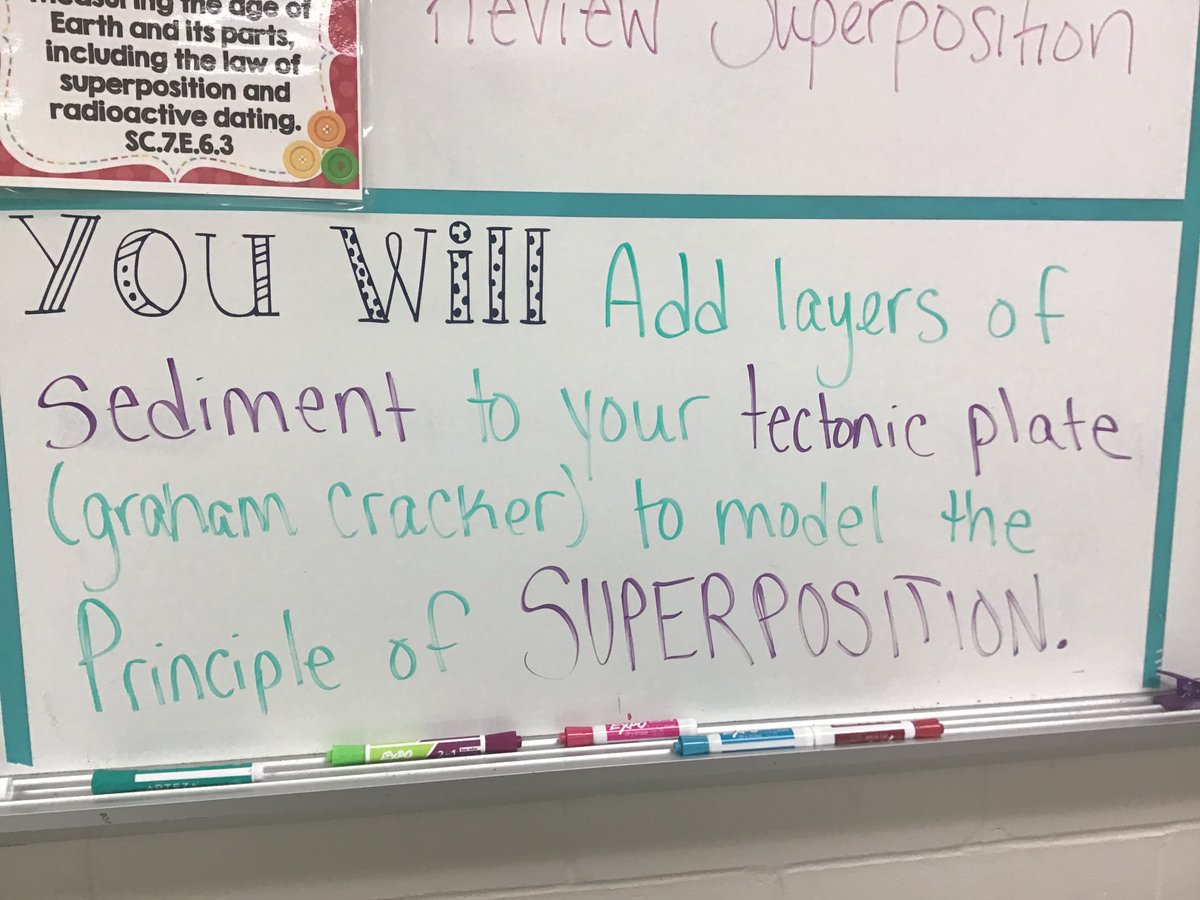 measuring the age of
Earth and its parts,
including the law of
superposition and
radioactive dating.
SC.7.E.6.3
Review Superposition
You Will Add layers of
Sediment to your tectonic plate
(graham cracker) to model the
Principle of SUPERPOSITION.
EXPO
EXPO 2in1
ARTEZA